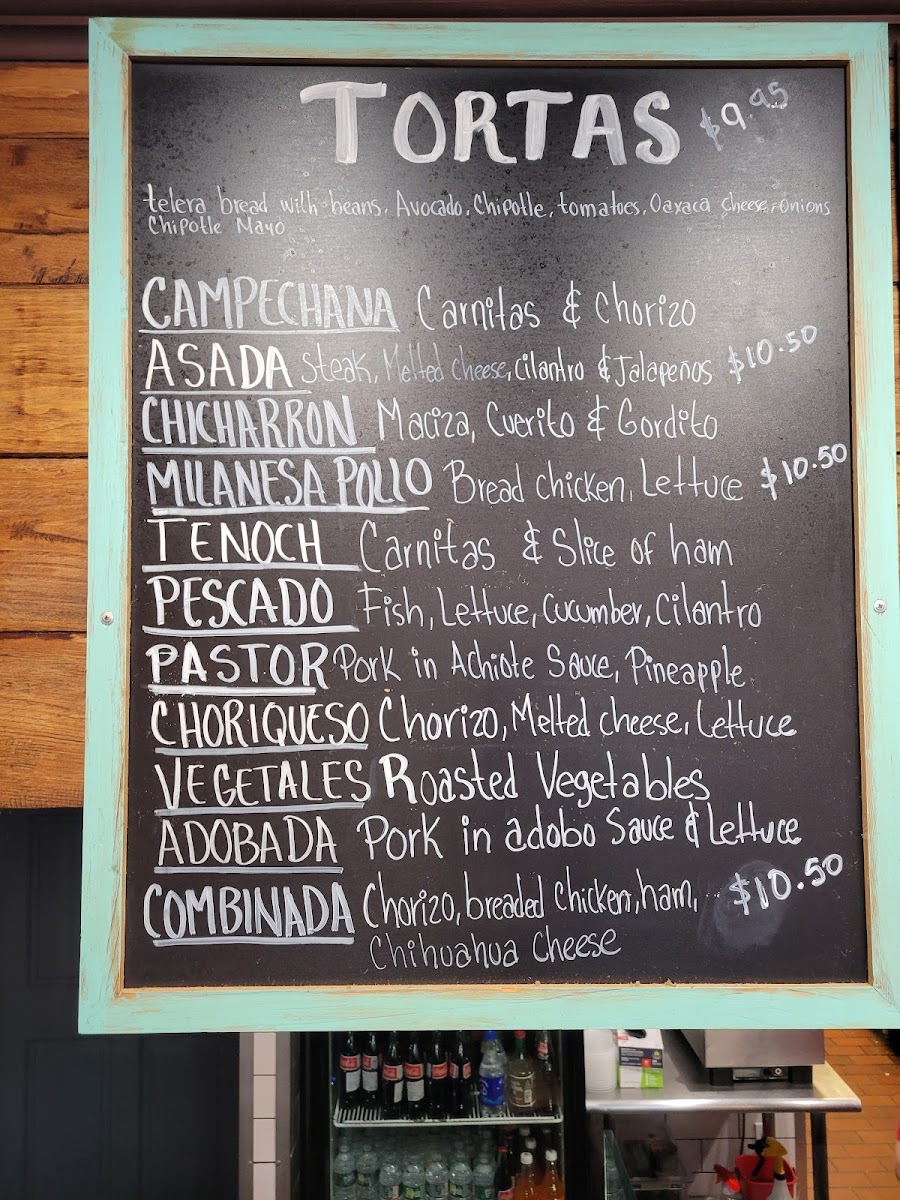 TORTAS $9.95
telera bread with beans, Avocado, Chipotle, tomatoes, Oaxaca cheese, onions
Chipotle Mayo
CAMPECHANA Carnitas & Chorizo
ASADA Steak, Melted cheese, Cilantro & Jalapeños $10.50
CHICHARRON Maciza, Cuerito & Gordito
MILANESA POLLO Bread chicken, Lettuce $10.50
TENOCH Carnitas & Slice of ham
PESCADO Fish, Lettuce, Cucumber, Cilantro
PASTOR Pork in Achiote Sauce, Pineapple
CHORIQUESO Chorizo, Melted cheese, Lettuce
VEGETALES Roasted Vegetables
ADOBADA Pork in adobo Sauce & Lettuce
COMBINADA Chorizo, breaded Chicken, ham, $10.50
Chihuahua Cheese